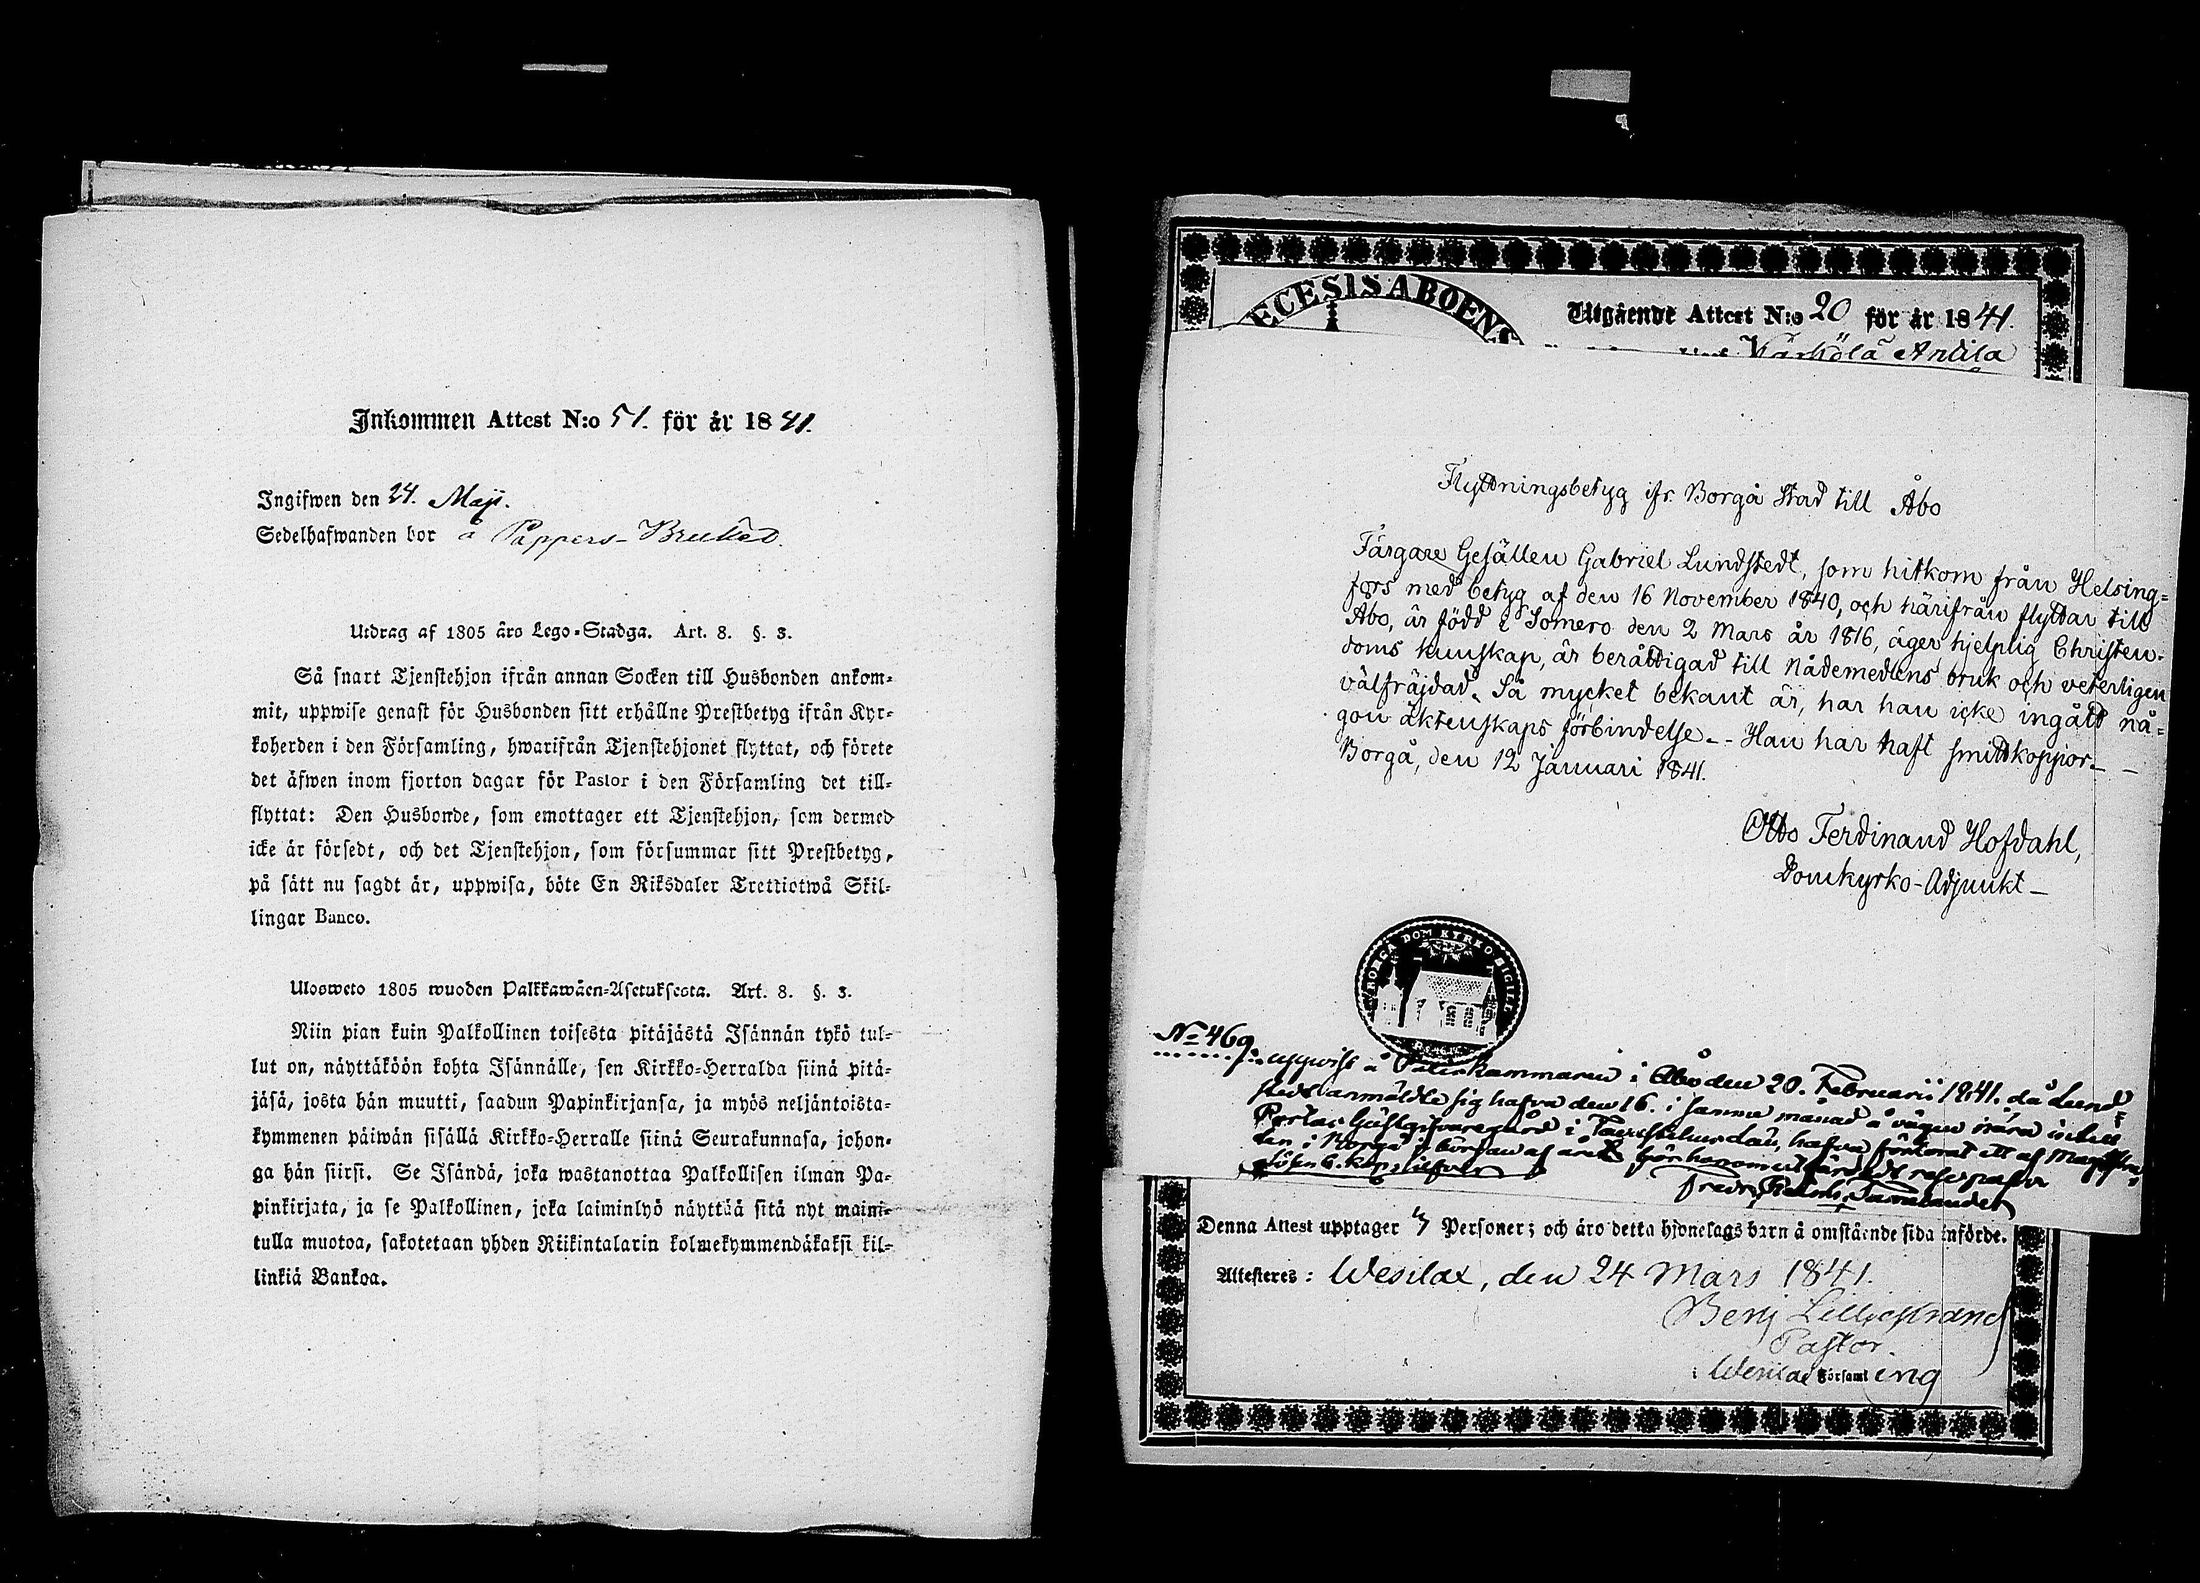 Inkommen Attest N:o 51. för år 1841.
Ingifwen den 24. Maji.
Sedelhafwanden bor å Pappers-Bruket.
Utdrag af 1805 års Lego-Stadga. Art. 8. §. 3.
Så snart Tjenstehjon ifrån annan Socken till Husbonden ankom-
mit, uppwise genast för Husbonden sitt erhållne Prestbetyg ifrån Kyr-
koherden i den Församling, hwarifrån Tjenstehjonet flyttat, och förete
det äfwen inom fjorton dagar för Pastor i den Församling det till-
flyttat: Den Husbonde, som emottager ett Tjenstehjon, som dermed
icke är försedt, och det Tjenstehjon, som försummar sitt Prestbetyg,
på sätt nu sagdt är, uppwisa, böte En Riksdaler Trettiotwå Skil-
lingar Banco.
Ulosweto 1805 wuoden Palkkawäen-Asetuksesta. Art. 8. §. 3.
Niin pian kuin Palkollinen toisesta pitäjästä Isännän tykö tul-
lut on, näyttäköön kohta Isännälle, sen Kirkko-Herralda siinä pitä-
jäsä, josta hän muutti, saadun Papinkirjansa, ja myös neljäntoista-
kymmenen päiwän sisällä Kirkko-Herralle siinä Seurakunnasa, johon-
ga hän siirsi. Se Isändä, joka wastanottaa Palkollisen ilman Pa-
pinkirjata, ja se Palkollinen, joka laiminlyö näyttää sitä nyt maini-
tulla muotoa, sakotetaan yhden Riikintalarin kolmekymmendäkaksi kil-
linkiä Bankoa.
ECESIS ABOENS
Utgående Attest N:o 20 för år 1841.
Kärkölä Antila
Flyttningsbetyg ifr. Borgå Stad till Åbo
Färgare Gesällen Gabriel Lundstedt, som hitkom från Helsing=
fors med betyg af den 16 November 1840, och härifrån flyttar till
Åbo, är född i Somero den 2 Mars år 1816, äger hjelplig Christen-
doms kunskap, är berättigad till Nådemedlens bruk och veterligen
välfräjdad. Så mycket bekant är, har han icke ingått nå=
gon äktenskaps förbindelse. - Han har haft smittkoppor. -
Borgå, den 12 Januari 1841.
Otto Ferdinand Hofdahl,
Domkyrko-Adjunkt -
BORGÅ DOM KYRKO SIGILL
No 469.
uppwist å Poliskammaren i Åbo den 20. Februarii 1841. då Lund=
stedt anmäldte sig hafva den 16. i samma månad å vägen nära intill
Gästgifvaregård i Tavastehus Län, hafva förlorat ett af Magistra=
ten i Borgå i början af året för honom utfärdadt respass
Lösen 6. kop. silfver
Denna Attest upptager Personer; och äro detta hjonelags barn å omstående sida införde.
Attesteres: Wesilax, den 24 Mars 1841.
Benj Lilljestrand
Pastor.
i Wesilax Församling